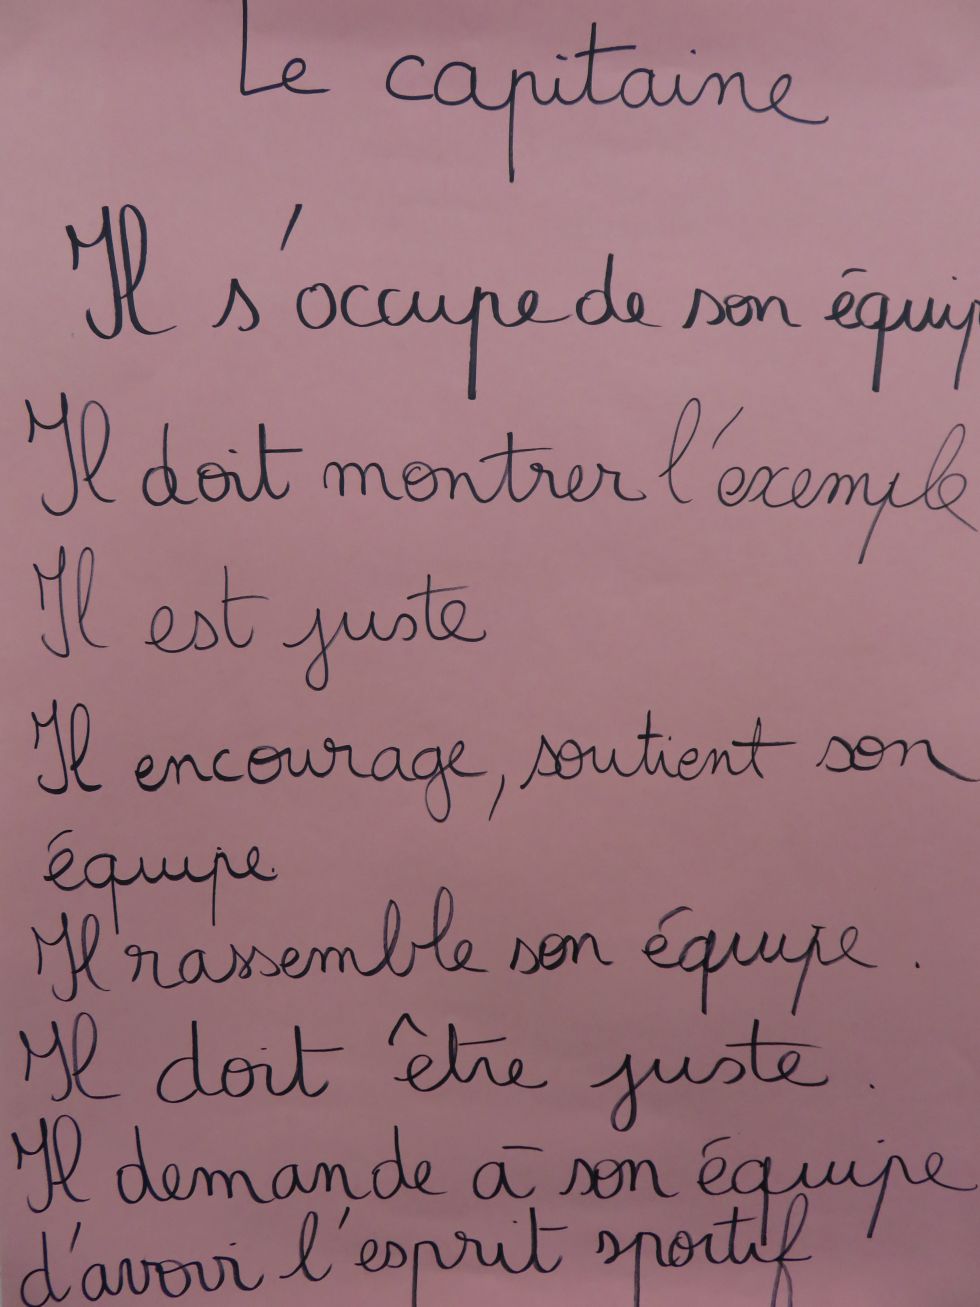 Le capitaine
Il s'occupe de son équip
Il doit montrer l'exemple
Il est juste
Il encourage, soutient son
équipe.
Il rassemble son équipe.
Il doit être juste.
Il demande à son équipe
d'avoir l'esprit sportif